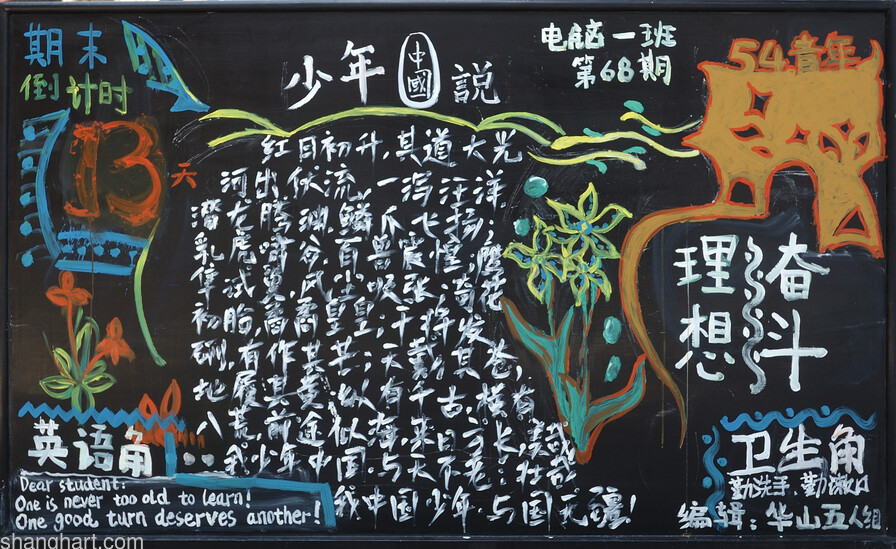 期末
倒计时
13天
少年中國説
电脑一班
第68期
54青年
红日初升,其道大光
河出伏流 一泻汪洋
潜龙腾渊,鳞爪飞扬,
乳虎啸谷百兽震惶,鹰
隼试翼,风尘吸张,奇花
初胎,矞矞皇皇;干将发
硎,有作其芒;天戴其苍,
地履其黄;纵有千古,横有
八荒,前途似海,来日方长,美哉
我少年中国,与天不老;壮哉
我中国少年,与国无疆!
理想
奋斗
英语角
Dear student:
One is never too old to learn!
One good turn deserves another!
卫生角
勤洗手、勤漱口
编辑:华山五人组
shanghart.com